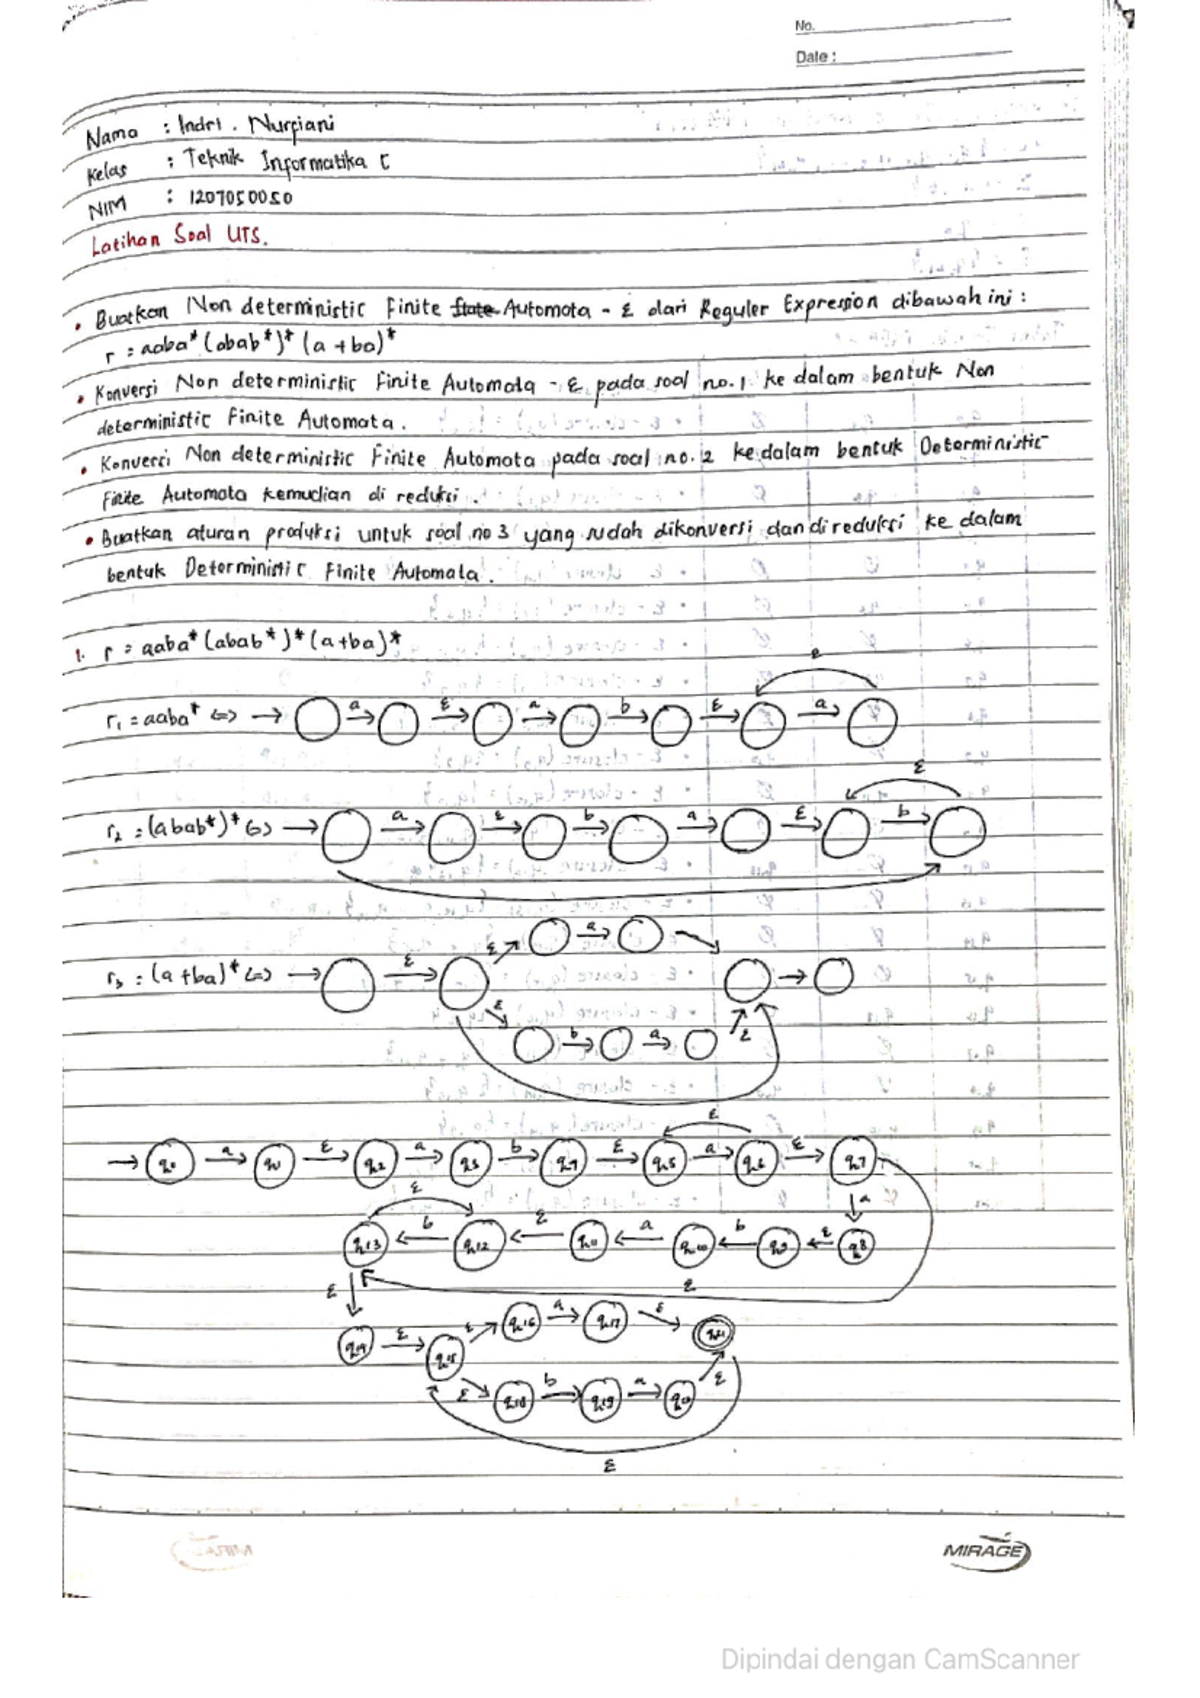 No.
Date :
Nama : Indri . Nurfiani
Kelas : Teknik Informatika C
NIM : 1207050050
Latihan Soal UTS.
• Buatkan Non deterministic Finite State Automata - ε dari Reguler Expression dibawah ini :
r = aaba* (abab*)* (a + ba)*
• Konversi Non deterministic Finite Automata - ε pada soal no. 1 ke dalam bentuk Non
deterministic Finite Automata.
• Konversi Non deterministic Finite Automata pada soal no. 2 kedalam bentuk Deterministic
Finite Automata kemudian di reduksi.
• Buatkan aturan produksi untuk soal no 3 yang sudah dikonversi dan direduksi ke dalam
bentuk Deterministic Finite Automata.
1. r = aaba* (abab*)* (a+ba)*
r₁ = aaba* <=> a ε a b ε a ε
r₂ = (abab*)* <=> a ε b a ε b ε
r₃ = (a+ba)* <=> ε ε a ε b a ε
q0 a q1 ε q2 a q3 b q4 ε q5 a q6 ε q7 ε
q13 b q12 ε q11 a q10 b q9 ε q8 a ε
ε ε
q14 ε q15 ε q16 a q17 ε q21
ε q18 b q19 a q20 ε
ε
MIRAGE
Dipindai dengan CamScanner